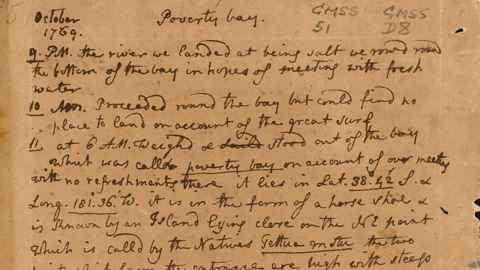 October Poverty bay. GMSS GMSS
1769. 51 D8
9. P.M. the river we landed at being salt we row'd round
the bottom of the bay in hopes of meeting with fresh
water
10 Proceeded round the bay but could find no
place to land on account of the great surf
11 at 6 A.M. Weigh'd & stood out of the bay
which was called poverty bay on account of our meeting
with no refreshments there it lies in Lat. 38.42 S. &
Long. 181.36. W. it is in the form of a horse shoe &
is known by an Island lying close on the NE point
which is call'd by the Natives the two
the entrance are high with steep